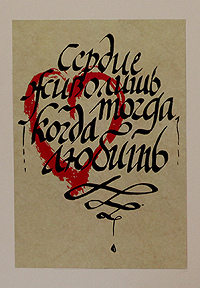 Сердце
живо лишь
тогда,
когда
любить